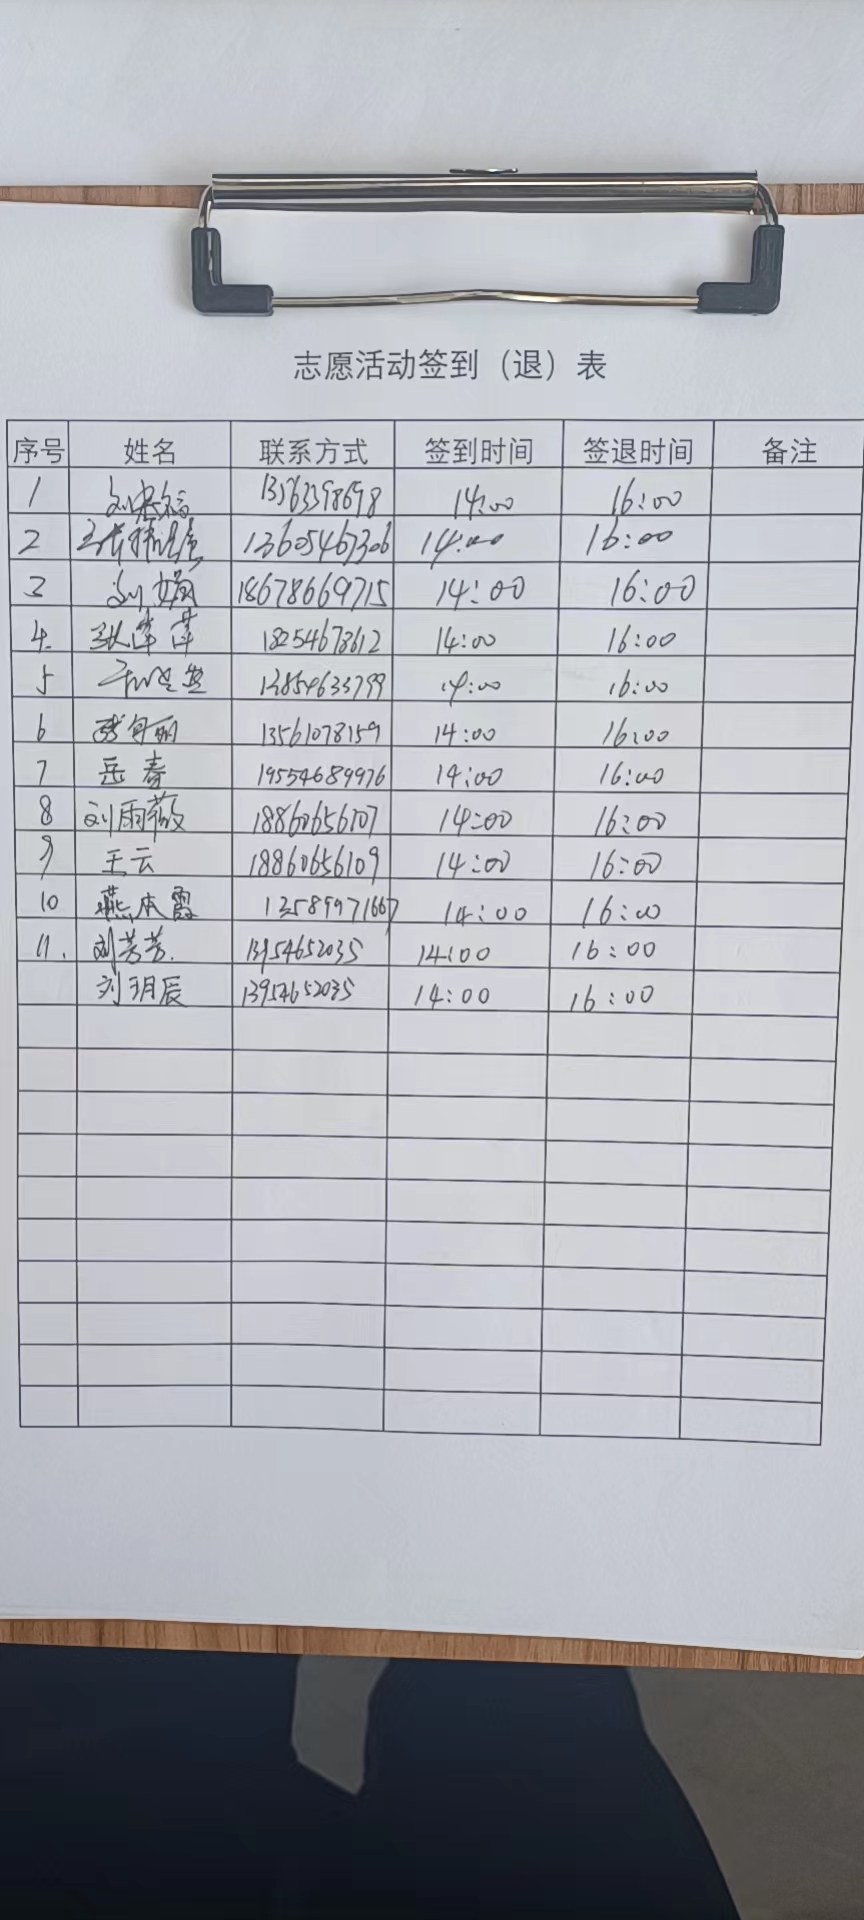 志愿活动签到（退）表
序号 姓名 联系方式 签到时间 签退时间 备注
1 刘 13563398698 14:00 16:00
2 13605467306 14:00 16:00
3 刘娟 18678669715 14:00 16:00
4. 狄萍萍 18254678612 14:00 16:00
5 13854633799 14:00 16:00
6 13561078159 14:00 16:00
7 岳春 19554689976 14:00 16:00
8 刘雨薇 18860656107 14:00 16:00
9 王云 18860656109 14:00 16:00
10 燕本霞 13589971667 14:00 16:00
11. 刘芳芳. 13954652035 14:00 16:00
刘玥辰 13954652035 14:00 16:00